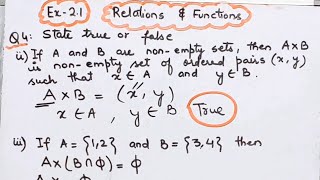 Ex-2.1 Relations & Functions
Q4: State true or false
ii) If A and B are non-empty sets, then A×B
is non-empty set of ordered pairs (x, y)
such that x ∈ A and y ∈ B.
A × B = (x, y)
x ∈ A , y ∈ B True
iii) If A = {1,2} and B = {3,4} then
A×(B∩ϕ) = ϕ